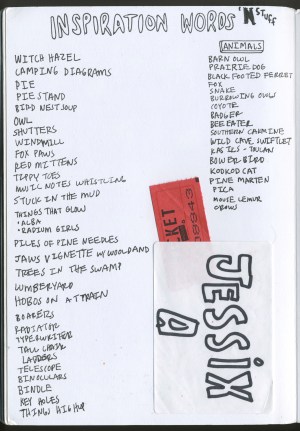 INSPIRATION WORDS 'N' STUFF
WITCH HAZEL
CAMPING DIAGRAMS
PIE
PIE STAND
BIRD NEST SOUP
OWL
SHUTTERS
WINDMILL
FOX PAWS
RED MITTENS
TIPPY TOES
MUSIC NOTES WHISTLING
STUCK IN THE MUD
THINGS THAT GLOW
• ALBA
• RADIUM GIRLS
PILES OF PINE NEEDLES
JAWS VIGNETTE W/WOODLAND
TREES IN THE SWAMP
LUMBERYARD
HOBOS ON A TRAIN
BOAKERS
RADIATOR
TYPEWRITER
TALL CHAIR
LADDERS
TELESCOPE
BINOCULARS
BINDLE
KEY HOLES
THINGS HIGH UP
ANIMALS
BARN OWL
PRAIRIE DOG
BLACK FOOTED FERRET
FOX
SNAKE
BURROWING OWLS
COYOTE
BADGER
BEE EATER
SOUTHERN CARMINE
WILD CAVE SWIFTLET
BOWER BIRD
KODKOD CAT
PINE MARTEN
PICA
MOUSE LEMUR
CROWS
JESSIX